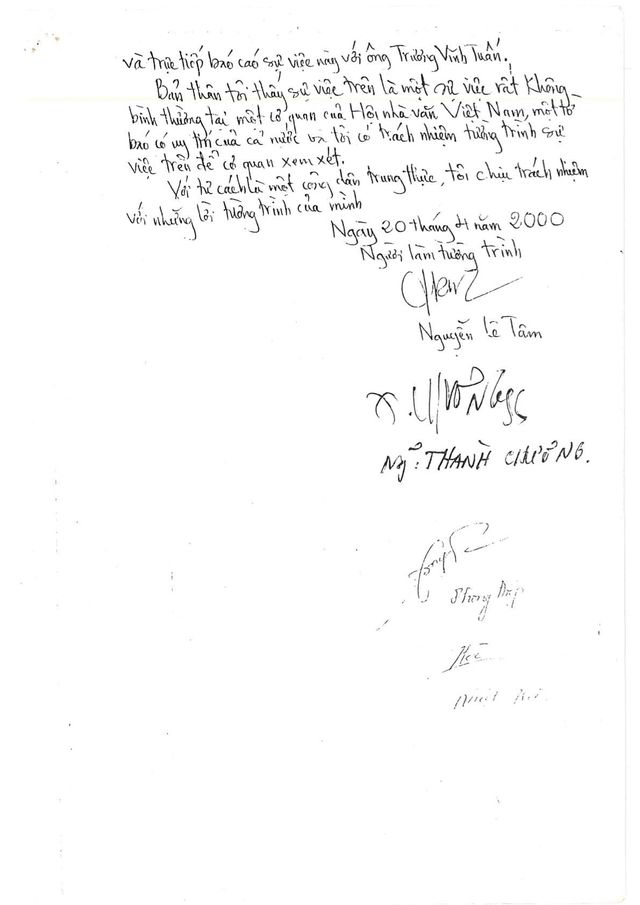 và trực tiếp báo cáo sự việc này với ông Trương Vĩnh Tuấn.
Bản thân tôi thấy sự việc trên là một sự việc rất không
bình thường tại một cơ quan của Hội nhà văn Việt Nam, một tờ
báo có uy tín của cả nước và tôi có trách nhiệm tường trình sự
việc trên để cơ quan xem xét.
Với tư cách là một công dân trung thực, tôi chịu trách nhiệm
với những lời tường trình của mình
Ngày 20 tháng 4 năm 2000
Người làm tường trình
Nguyễn Lê Tâm
THANH CHƯƠNG.
Phong Điệp